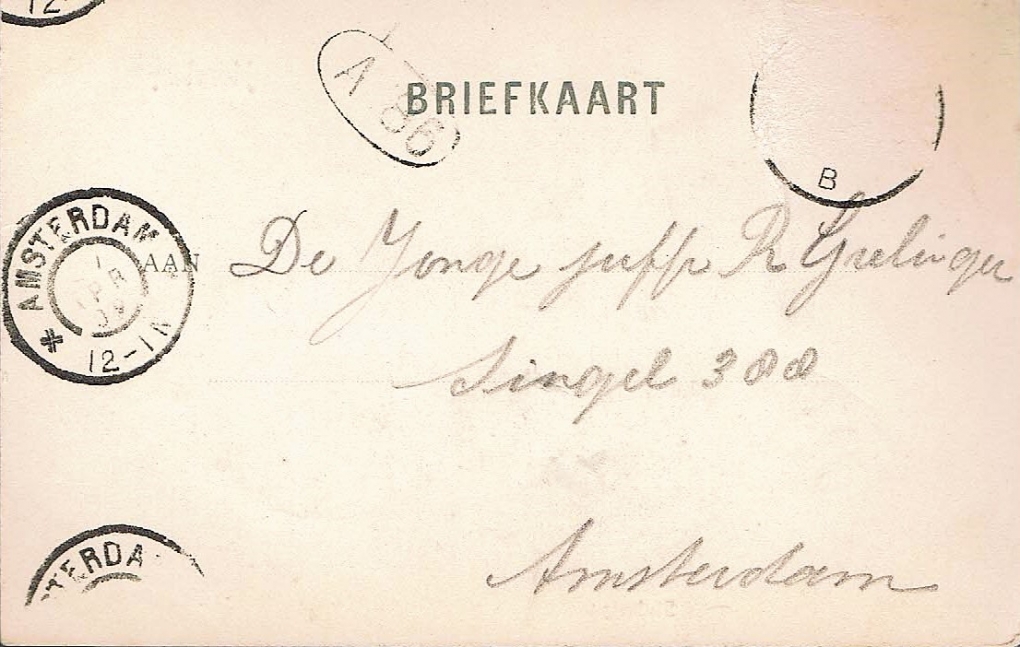 12-
A 86
BRIEFKAART
B
AMSTERDAM
1
12-1N
AAN De Jonge juffr R Grelinger
Singel 388
Amsterdam
TERDA